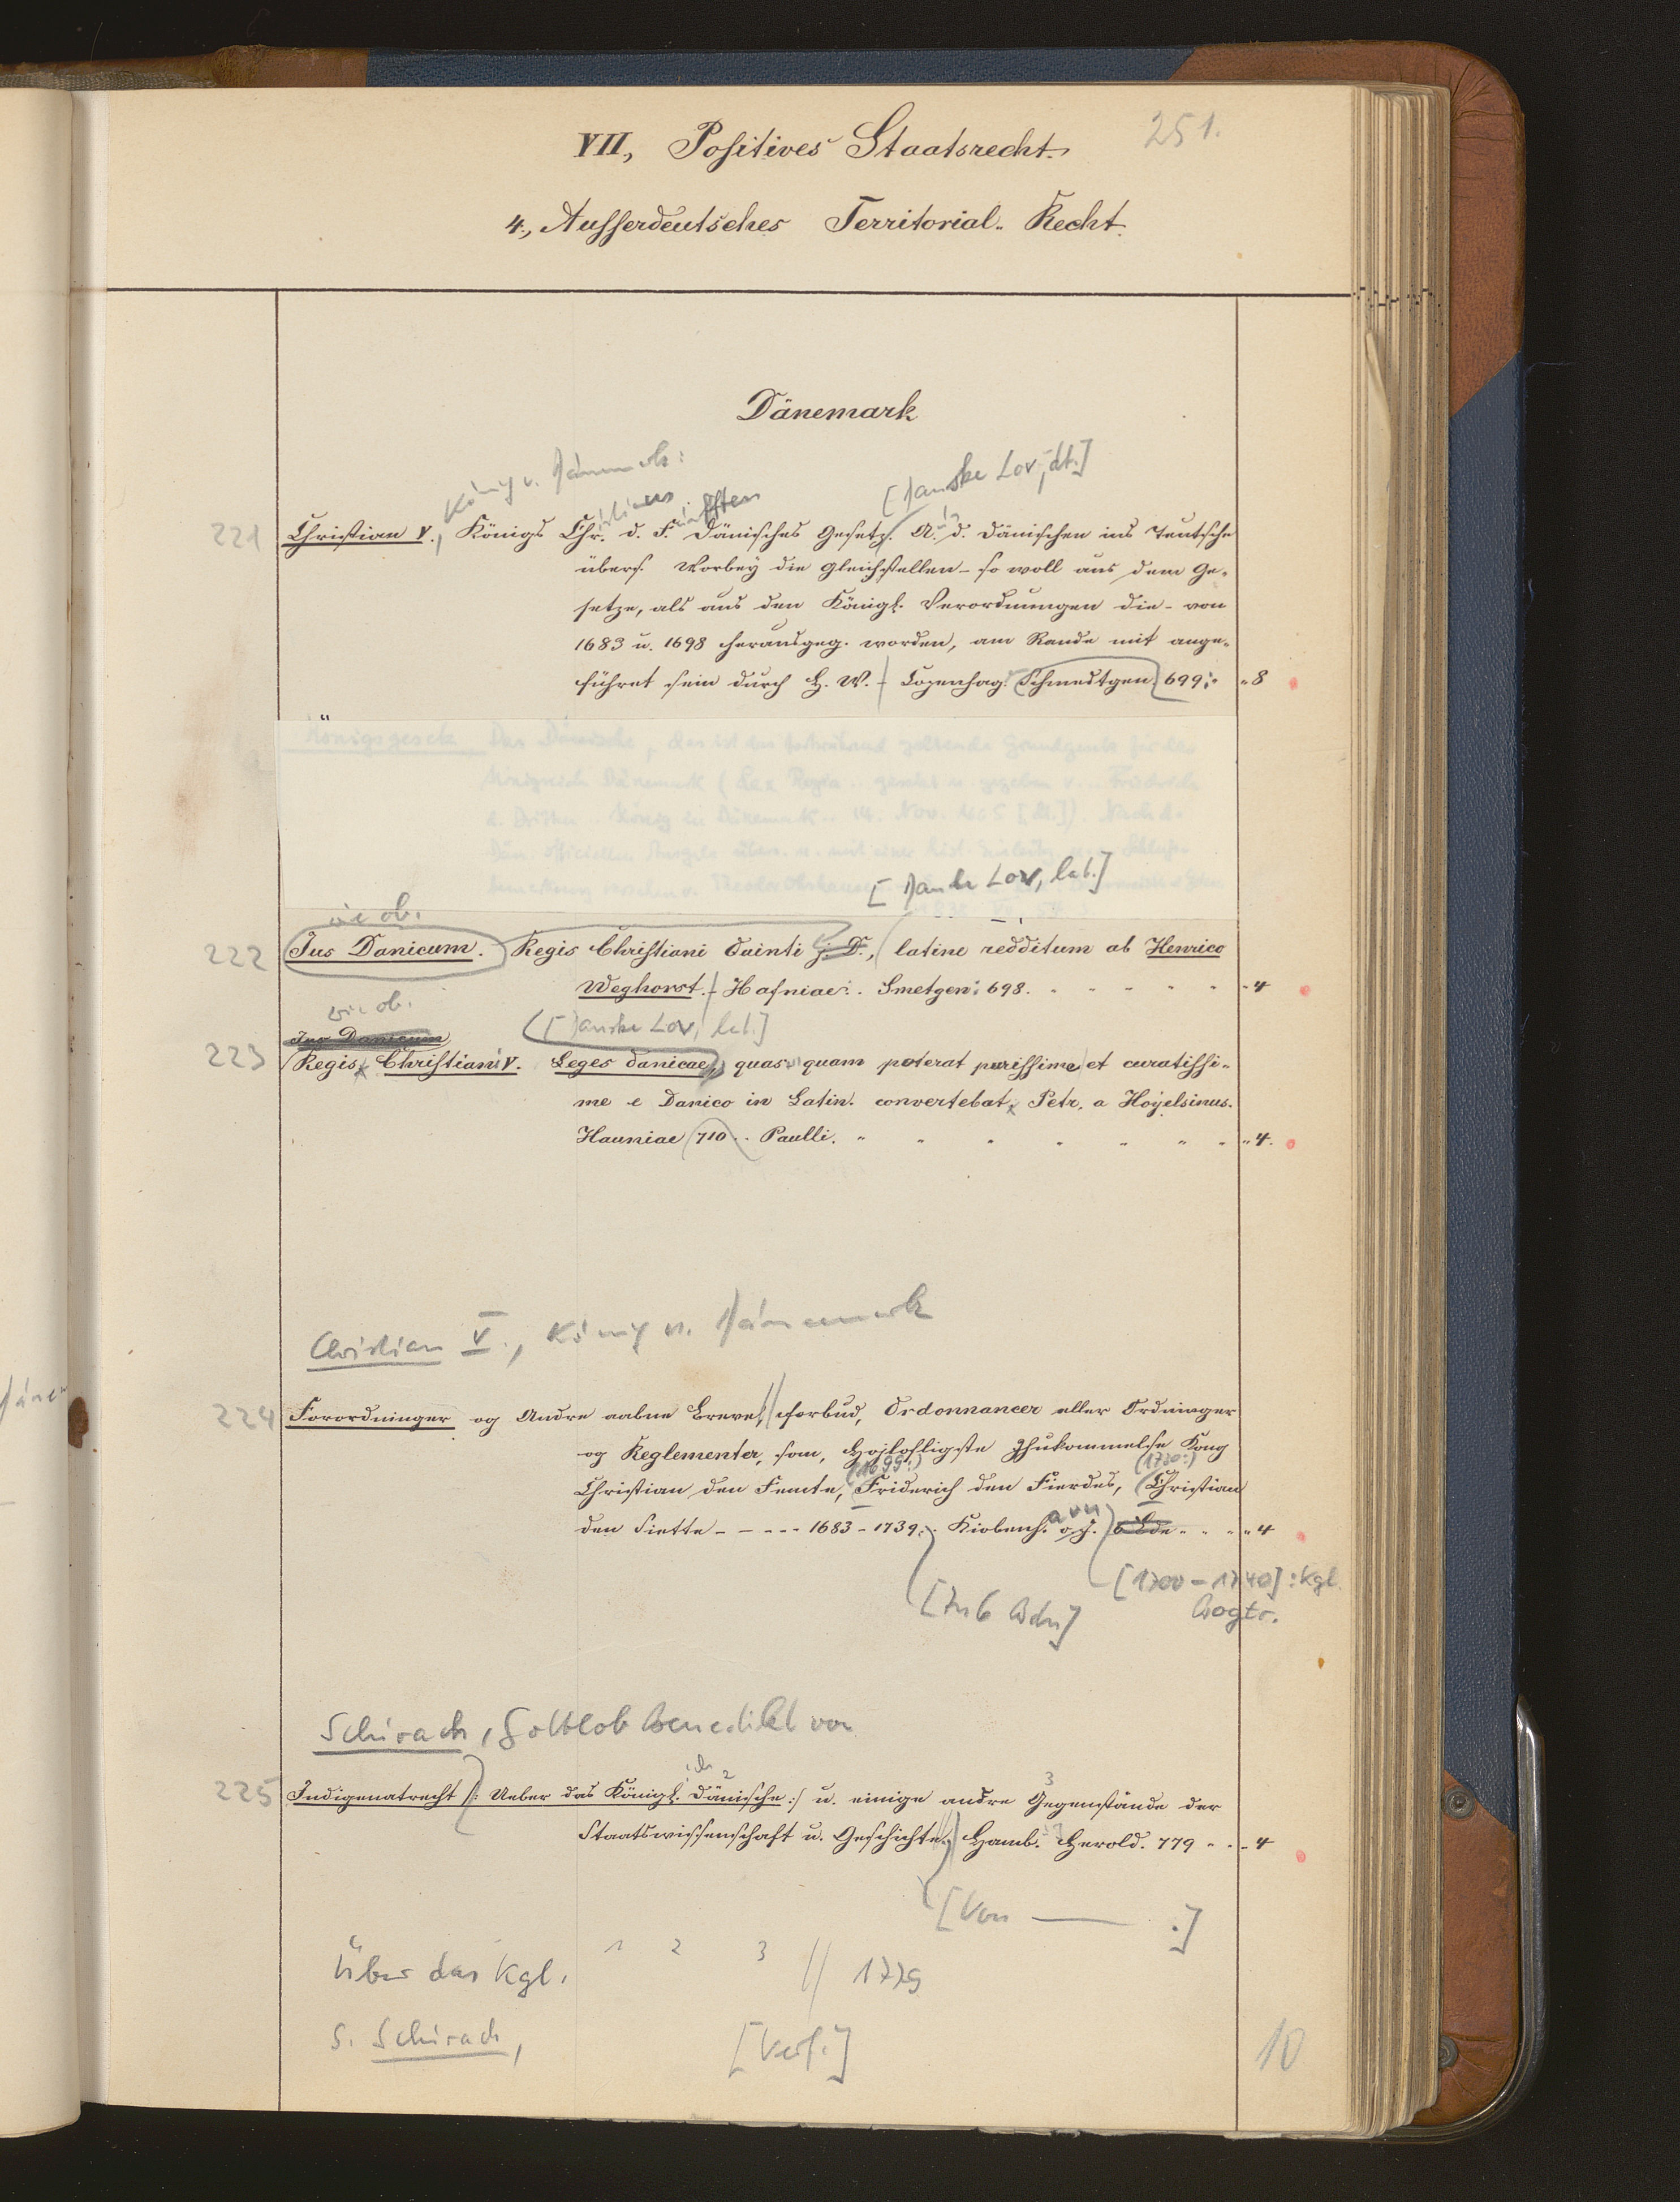 251.
VII, Positives Staatsrecht.
4., Aufserdeutsches Territorial-Recht.
Dänemark
König v. Dänemark:
[Danske Lov, dt.]
istians ünfften
221 Christian V., Königs Chr. d. F. Dänisches Gesetz. A. d. Dänischen ins Teutsche
übers. Worbey die gleichstellen - so woll aus dem Ge-
setze, als aus den Königl. Verordnungen die - von
1683 u. 1698 herausgeg. worden, am Rande mit ange-
führet sein durch H. W. - Copenhag. Schmedtgen 699. 8
Königsgesetz Das Dänische, das ist das fortwährend geltende Grundgesetz für das
Königreich Dänemark (Lex Regia
d. Dritten König in Dänemark 14. Nov. 1665 [dt.]). Nach d.
Dän. officiellen Ausgabe übers. u. mit einer hist. Einleitung
Theodor Olshausen
[Danske Lov, lat.]
wie ob.
222 Jus Danicum. Regis Christiani Quinti j. D., latine redditum ab Henrico
Weghorst. - Hafniae. Smetgen. 698. 4
wie ob.
[Danske Lov, lat.]
Jus Danicum
223 Regis Christiani V. Leges danicae, quas quam poterat purissime et curatissi-
me e Danico in Latin. convertebat Petr. a Hoyelsinus.
Hauniae 710. Paulli. 4.
Christian V., König v. Dänemark
224 Forordninger og Andre aabne Breve, forbud, Ordonnancer eller Ordninger
og Reglementer, som, Højlofligste Ihukommelse Kong
(1699:) (1730:)
Christian den Femte, Friderich den Fierdes, Christian
den Siette - - - - - 1683 - 1739. Kiobenh. o. J. 6 Bde 4
avn
[1700-1740]: Kgl.
[In 6 Bdn] Bogtr.
Schirach, Gottlob Benedikt von
2 3
225 Indigenatrecht /: Ueber das Königl. Dänische :/ u. einige andre Gegenstände der
Staatswissenschaft u. Geschichte. Hamb. Herold. 779 4
[Von .]
Über das Kgl. 1 2 3 // 1779
S. Schirach, [Verf.]
10